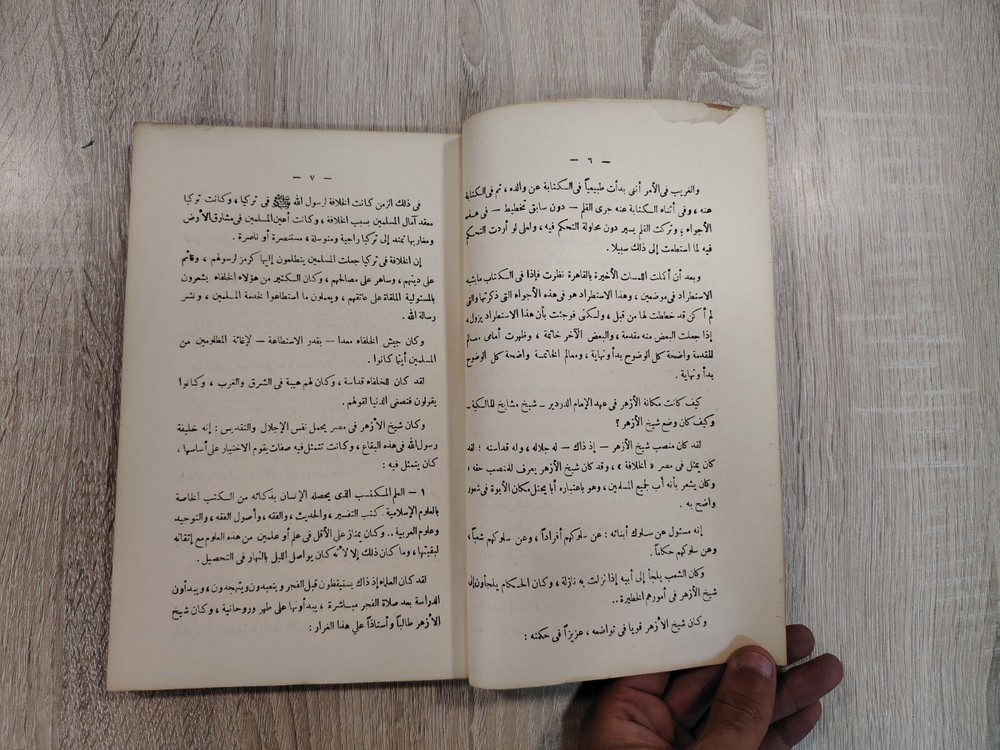 — ٦ —
والغريب فى الأمر أننى بدأت طبيعياً فى الكتابة عن والده ، ثم فى الكتابة
عنه ، وفى أثناء الكتابة عنه جرى القلم — دون سابق تخطيط — فى هذه
الأجواء ؛ وتركت القلم يسير دون محاولة التحكم فيه ، ولعلى لو أردت التحكم
فيه لما استطعت إلى ذلك سبيلا .
وبعد أن أكملت اللمسات الأخيرة بالقاهرة نظرت فإذا فى الكتاب مايشبه
الاستطراد فى موضعين ، وهذا الاستطراد هو فى هذه الأجواء التى ذكرتها والتى
لم أكن قد خططت لها من قبل ، ولكنى فوجئت بأن هذا الاستطراد يزول ،
إذا جعلت البعض منه مقدمة ، والبعض الآخر خاتمة ، وظهرت أمامى معالم
للمقدمة واضحة كل الوضوح بدأ ونهاية ، ومعالم الخاتمة واضحة كل الوضوح
بدأ ونهاية .
كيف كانت مكانة الأزهر فى عهد الإمام الدردير — شيخ مشايخ المالكية —
وكيف كان وضع شيخ الأزهر ؟
لقد كان منصب شيخ الأزهر — إذ ذاك — له جلاله ، وله قداسته : لقد
كان يمثل فى مصر « الخلافة » ، وقد كان شيخ الأزهر يعرف للمنصب حقه ؛
وكان يشعر بأنه أب لجميع المسلمين ، وهو باعتباره أبا يحتل مكان الأبوة فى شعور
واضح به .
إنه مسئول عن سلوك أبنائه : عن سلوكهم أفراداً ، وعن سلوكهم شعباً ،
وعن سلوكهم حكاماً .
وكان الشعب يلجأ إلى أبيه إذا نزلت به نازلة ، وكان الحكام يلجأون إلى
شيخ الأزهر فى أمورهم الخطيرة ..
وكان شيخ الأزهر قويا فى تواضعه ، عزيزاً فى حكمته :
— ٧ —
فى ذلك الزمن كانت الخلافة لرسول الله ﷺ فى تركيا ، وكانت تركيا
معقد آمال المسلمين بسبب الخلافة ، وكانت أعين المسلمين فى مشارق الأرض
ومغاربها تمتد إلى تركيا راجية ومتوسلة ، مستنصرة أو ناصرة .
إن الخلافة فى تركيا جعلت المسلمين يتطلعون إليها كرمز لرسولهم ، وقائم
على دينهم ، وساهر على مصالحهم ، وكان الكثير من هؤلاء الخلفاء يشعرون
بالمسئولية الملقاة على عاتقهم ، ويعملون ما استطاعوا لخدمة المسلمين ، ونشر
رسالة الله .
وكان جيش الخلفاء معدا — بقدر الاستطاعة — لإغاثة المظلومين من
المسلمين أينما كانوا .
لقد كان للخلفاء قداسة ، وكان لهم هيبة فى الشرق والغرب ، وكانوا
يقولون فتصغى الدنيا لقولهم .
وكان شيخ الأزهر فى مصر يحمل نفس الإجلال والتقديس : إنه خليفة
رسول الله فى هذه البقاع ، وكانت تتمثل فيه صفات يقوم الاختيار على أساسها ،
كان يتمثل فيه :
١ — العلم المكتسب الذى يحصله الإنسان بذكائه من الكتب الخاصة
بالعلوم الإسلامية كتب التفسير ، والحديث ، والفقه ، وأصول الفقه ، والتوحيد
وعلوم العربية .. وكان يمتاز على الأقل فى علم أو علمين من هذه العلوم مع إتقانه
لبقيتها ، وما كان ذلك إلا لأنه كان يواصل الليل بالنهار فى التحصيل .
لقد كان العلماء إذ ذاك يستيقظون قبل الفجر ويتعبدون ويتهجدون ، ويبدأون
الدراسة بعد صلاة الفجر مباشرة ، يبدأونها على طهر وروحانية ، وكان شيخ
الأزهر طالباً وأستاذاً علي هذا الغرار :